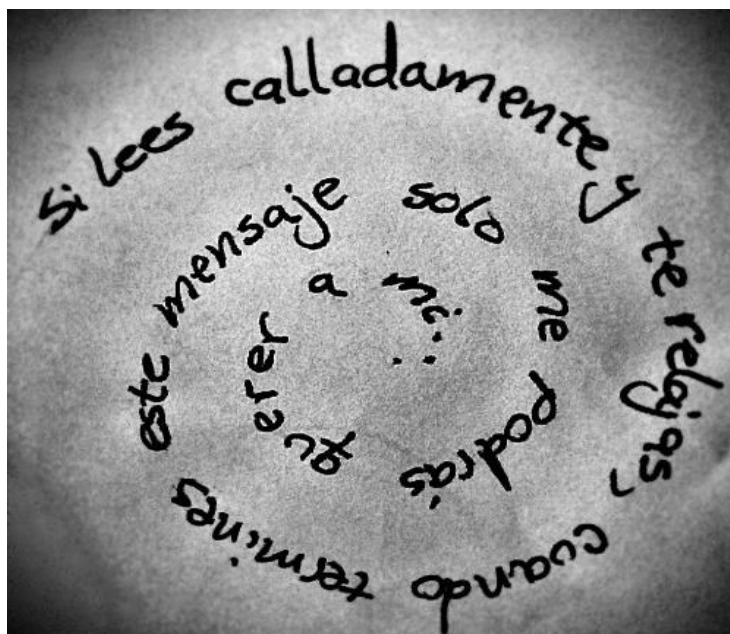 Si lees calladamente y te relajas, cuando termines este mensaje solo me podrás querer a mi...